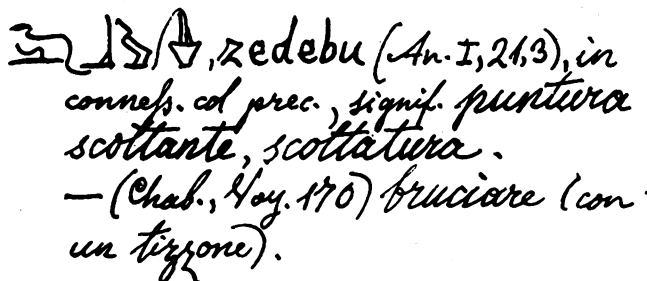 , zedebu (An. I, 21, 3), in
conness. col prec., signif. puntura
scottante, scottatura.
— (Chab., Voy. 170) bruciare (con
un tizzone).